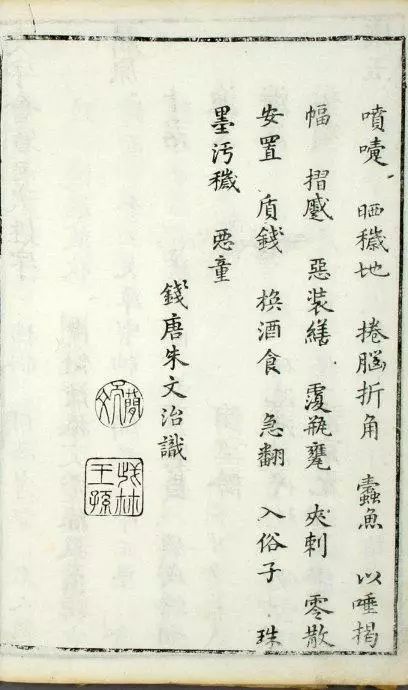 噴嚏 晒穢地 捲腦折角 蠹魚 以唾揭
幅 摺蹙 惡装繕 覆瓶甕 夾刺 零散
安置 质錢 換酒食 急翻 入俗子 珠
墨汚穢 惡童
錢唐朱文治識
林
王孫